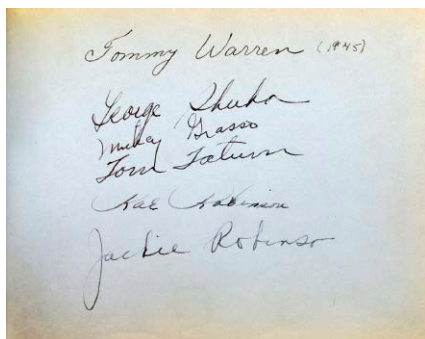 Tommy Warren (1945)
George Shuba
Mickey Grasso
Tom Tatum
Rae Robinson
Jackie Robinson